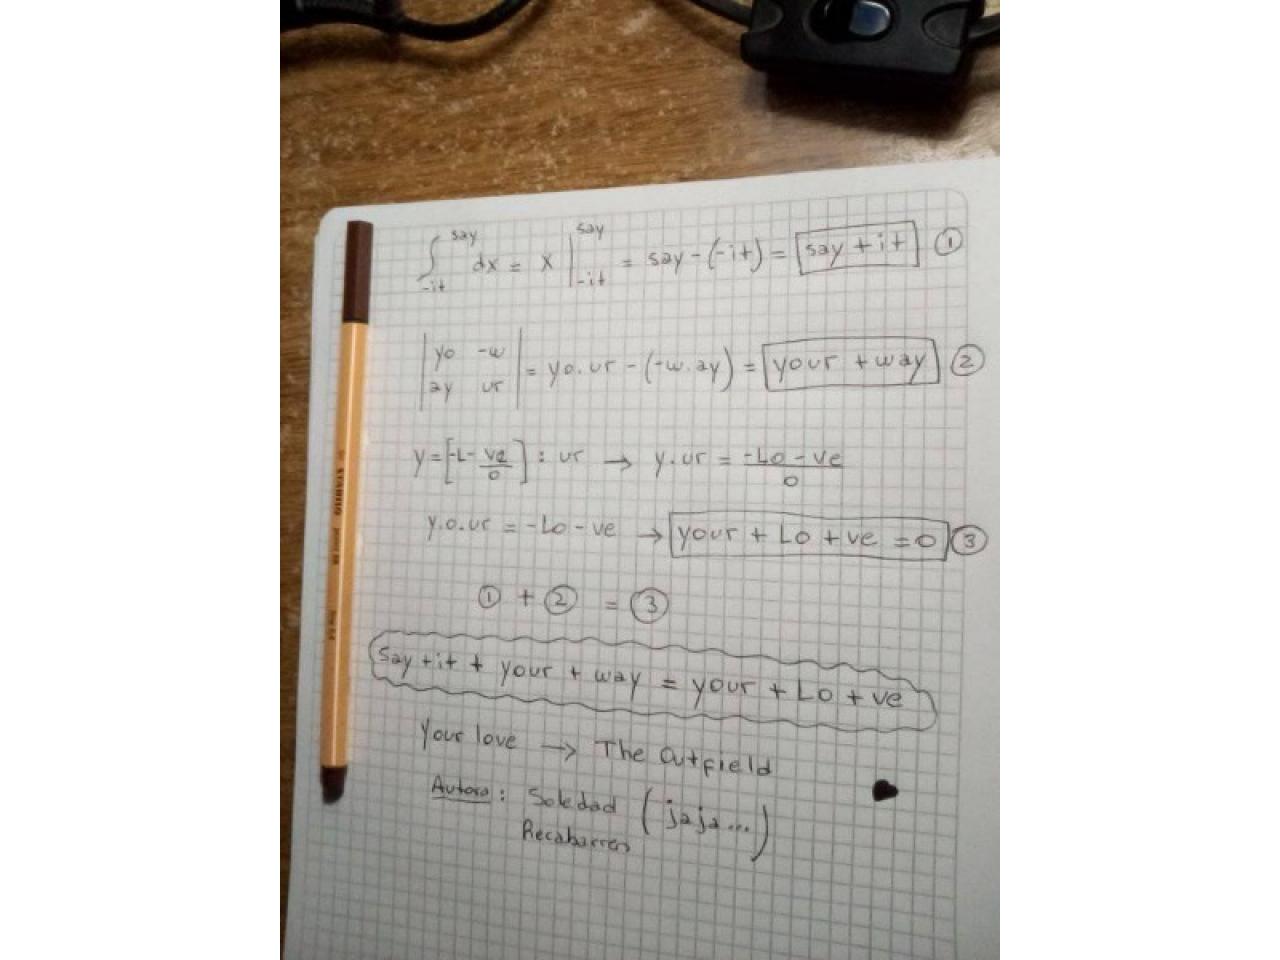 ∫_{-it}^{say} dx = x |_{-it}^{say} = say - (-it) = say + it ①
| yo -w |
| ay ur | = yo.ur - (-w.ay) = your + way ②
y = [-L - ve/o] : ur → y.ur = -Lo - ve / o
y.o.ur = -Lo - ve → your + Lo + ve = 0 ③
① + ② = ③
say + it + your + way = your + Lo + ve
Your love → The Outfield
Autora: Soledad (jaja...)
Recabarren
STABILO